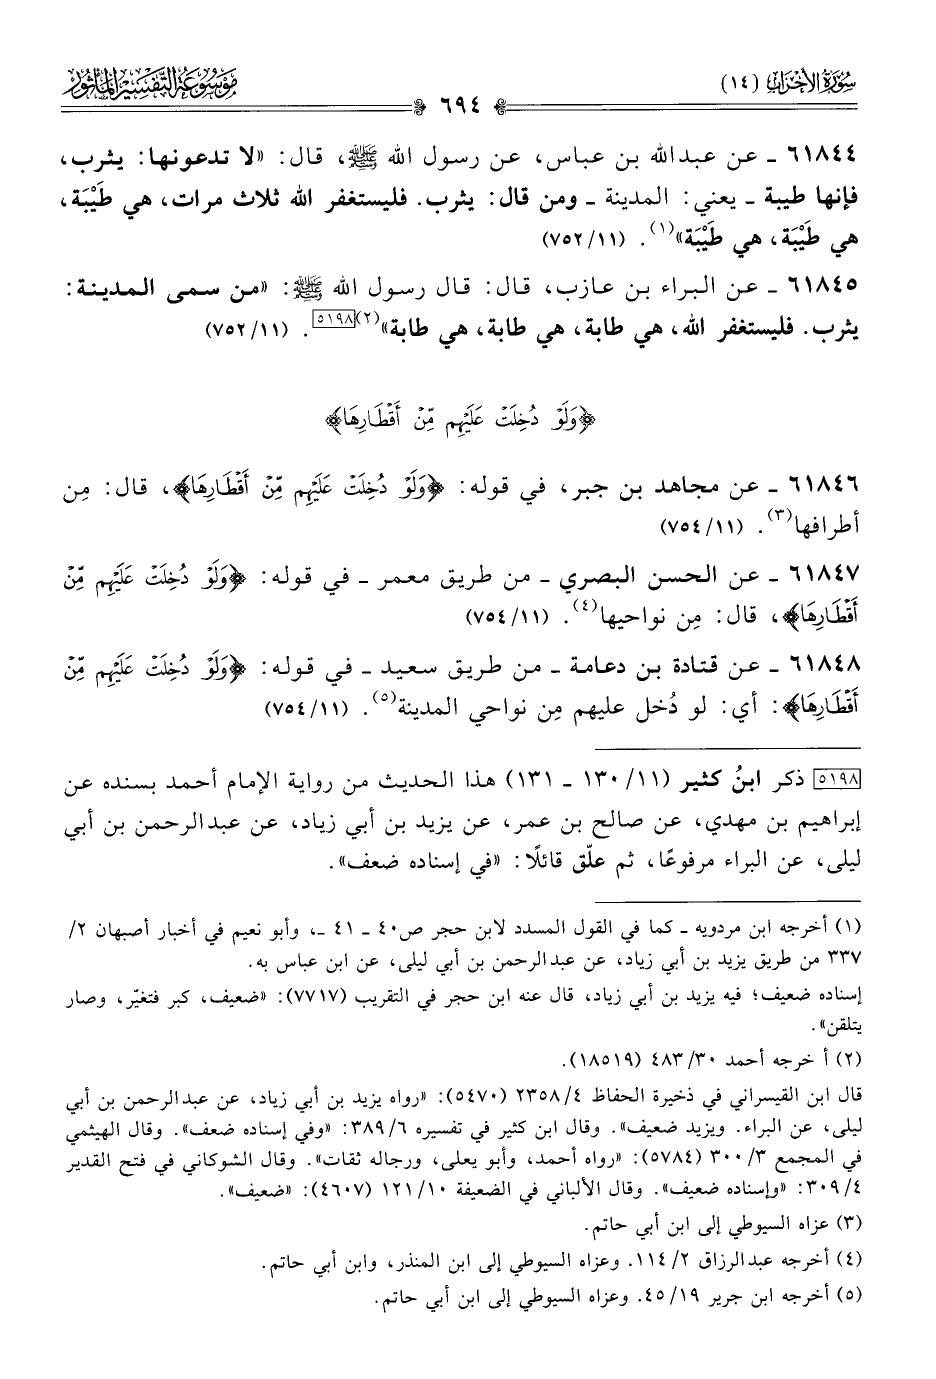 سُورَةُ الأَحْزَابِ (١٤)
٦٩٤
مَوْسُوعَةُ التَّفْسِيرِ المَأْثُور
٦١٨٤٤ ـ عن عبدالله بن عباس، عن رسول الله ﷺ، قال: «لا تدعونها: يثرب،
فإنها طيبة ـ يعني: المدينة ـ ومن قال: يثرب. فليستغفر الله ثلاث مرات، هي طَيْبَة،
هي طَيْبَة، هي طَيْبَة»(١). (٧٥٢/١١)
٦١٨٤٥ ـ عن البراء بن عازب، قال: قال رسول الله ﷺ: «من سمى المدينة:
يثرب. فليستغفر الله، هي طابة، هي طابة، هي طابة»(٢)[٥١٩٨]. (٧٥٢/١١)
﴿وَلَوْ دُخِلَتْ عَلَيْهِم مِّنْ أَقْطَارِهَا﴾
٦١٨٤٦ ـ عن مجاهد بن جبر، في قوله: ﴿وَلَوْ دُخِلَتْ عَلَيْهِم مِّنْ أَقْطَارِهَا﴾، قال: مِن
أطرافها(٣). (٧٥٤/١١)
٦١٨٤٧ ـ عن الحسن البصري ـ من طريق معمر ـ في قوله: ﴿وَلَوْ دُخِلَتْ عَلَيْهِم مِّنْ
أَقْطَارِهَا﴾، قال: مِن نواحيها(٤). (٧٥٤/١١)
٦١٨٤٨ ـ عن قتادة بن دعامة ـ من طريق سعيد ـ في قوله: ﴿وَلَوْ دُخِلَتْ عَلَيْهِم مِّنْ
أَقْطَارِهَا﴾: أي: لو دُخل عليهم مِن نواحي المدينة(٥). (٧٥٤/١١)
[٥١٩٨] ذكر ابنُ كثير (١١/ ١٣٠ ـ ١٣١) هذا الحديث من رواية الإمام أحمد بسنده عن
إبراهيم بن مهدي، عن صالح بن عمر، عن يزيد بن أبي زياد، عن عبدالرحمن بن أبي
ليلى، عن البراء مرفوعًا، ثم علّق قائلًا: «في إسناده ضعف».
(١) أخرجه ابن مردويه ـ كما في القول المسدد لابن حجر ص٤٠ ـ ٤١ ـ، وأبو نعيم في أخبار أصبهان ٢/
٣٣٧ من طريق يزيد بن أبي زياد، عن عبدالرحمن بن أبي ليلى، عن ابن عباس به.
إسناده ضعيف؛ فيه يزيد بن أبي زياد، قال عنه ابن حجر في التقريب (٧٧١٧): «ضعيف، كبر فتغيّر، وصار
يتلقن».
(٢) أ خرجه أحمد ٣٠/ ٤٨٣ (١٨٥١٩).
قال ابن القيسراني في ذخيرة الحفاظ ٤/ ٢٣٥٨ (٥٤٧٠): «رواه يزيد بن أبي زياد، عن عبدالرحمن بن أبي
ليلى، عن البراء. ويزيد ضعيف». وقال ابن كثير في تفسيره ٦/ ٣٨٩: «وفي إسناده ضعف». وقال الهيثمي
في المجمع ٣/ ٣٠٠ (٥٧٨٤): «رواه أحمد، وأبو يعلى، ورجاله ثقات». وقال الشوكاني في فتح القدير
٤/ ٣٠٩: «وإسناده ضعيف». وقال الألباني في الضعيفة ١٠/ ١٢١ (٤٦٠٧): «ضعيف».
(٣) عزاه السيوطي إلى ابن أبي حاتم.
(٤) أخرجه عبدالرزاق ٢/ ١١٤. وعزاه السيوطي إلى ابن المنذر، وابن أبي حاتم.
(٥) أخرجه ابن جرير ١٩/ ٤٥. وعزاه السيوطي إلى ابن أبي حاتم.